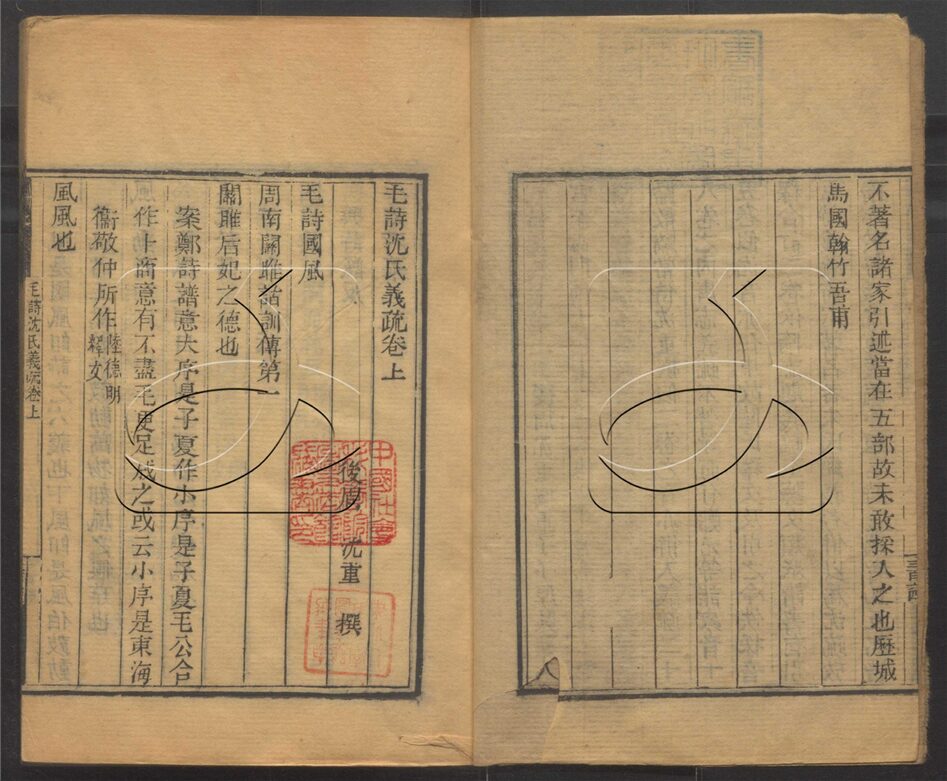 不著名諸家引述當在五部故未敢採入之也歷城
馬國翰竹吾甫
八
毛詩沈氏義疏卷上
後周 沈重 撰
毛詩國風
周南關雎詁訓傳第一
關雎后妃之德也
案鄭詩譜意大序是子夏作小序是子夏毛公合
作卜商意有不盡毛更足成之或云小序是東海
衞敬仲所作陸德明
釋文
風風也
毛詩沈氏義疏卷上